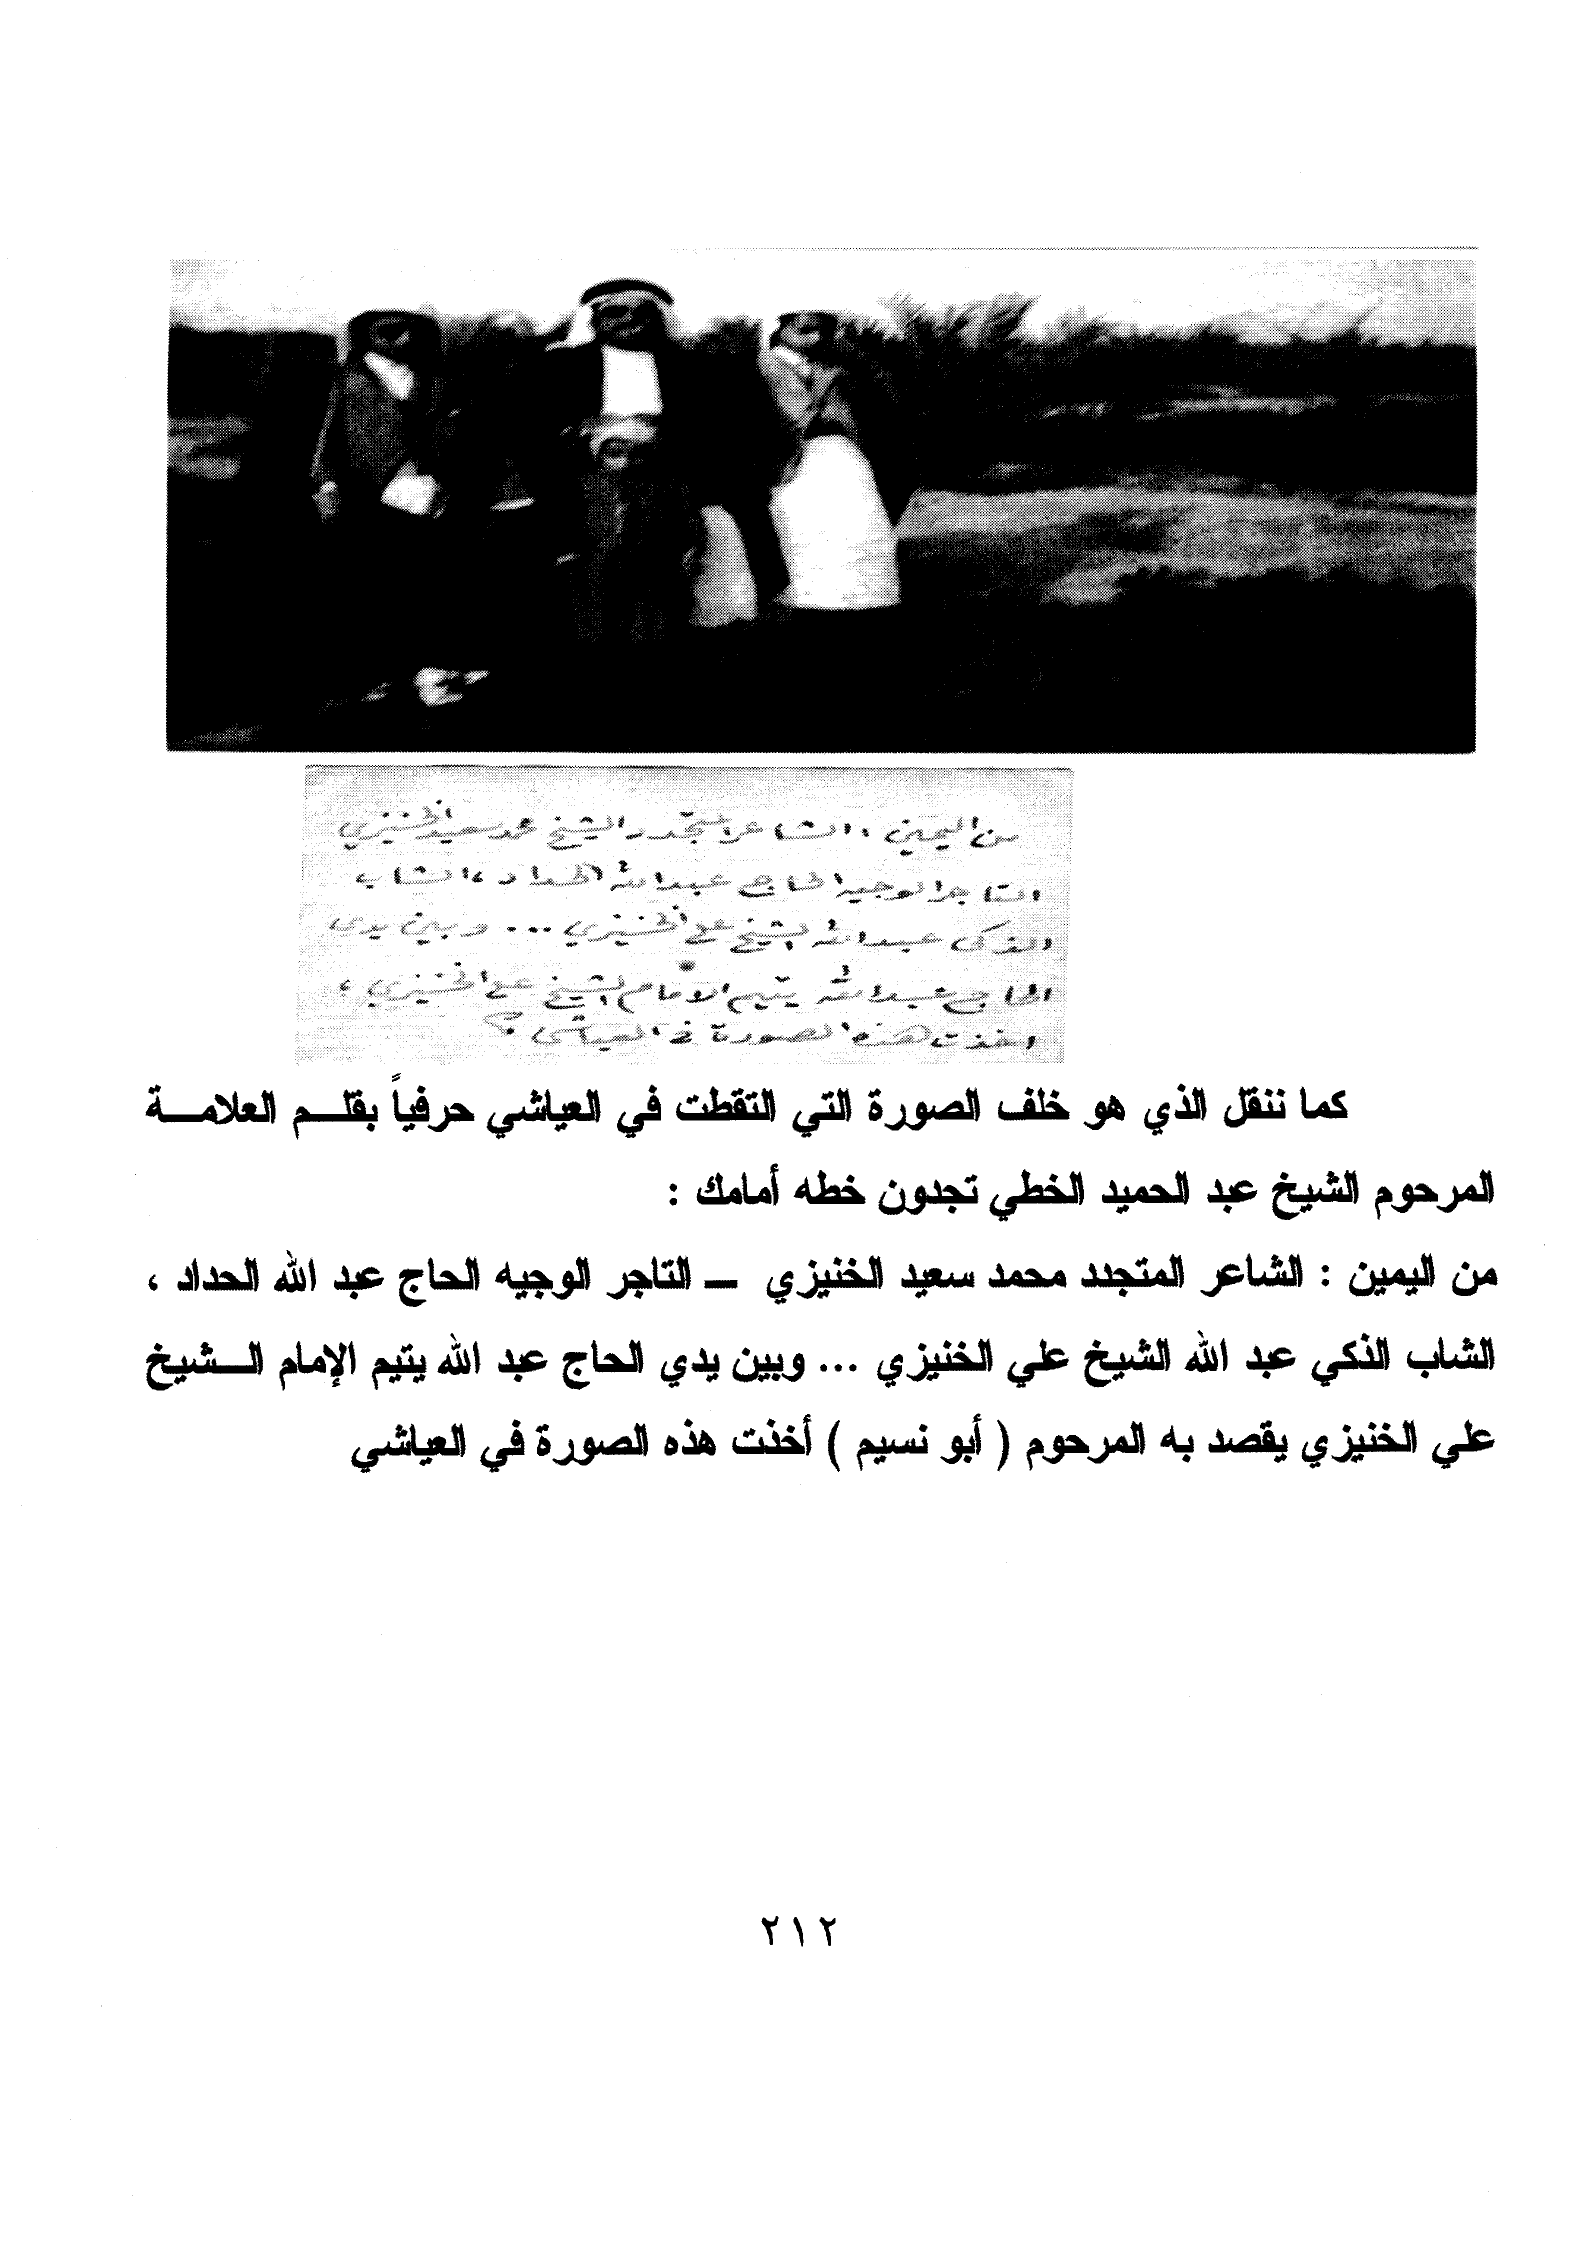 من اليمين ، الشاعر المتجدد الشيخ محمد سعيد الخنيزي
التاجر الوجيه الحاج عبدالله الحداد ، الشاب
الذكي عبدالله الشيخ علي الخنيزي ... وبين يدى
الحاج عبدالله يتيم الامام الشيخ علي الخنيزي ،
اخذت هذه الصورة في العياشي
كما ننقل الذي هو خلف الصورة التي التقطت في العياشي حرفياً بقلـــم العلامـــة
المرحوم الشيخ عبد الحميد الخطي تجدون خطه أمامك :
من اليمين : الشاعر المتجدد محمد سعيد الخنيزي – التاجر الوجيه الحاج عبد الله الحداد ،
الشاب الذكي عبد الله الشيخ علي الخنيزي ... وبين يدي الحاج عبد الله يتيم الإمام الـــشيخ
علي الخنيزي يقصد به المرحوم ( أبو نسيم ) أخذت هذه الصورة في العياشي
٢١٢